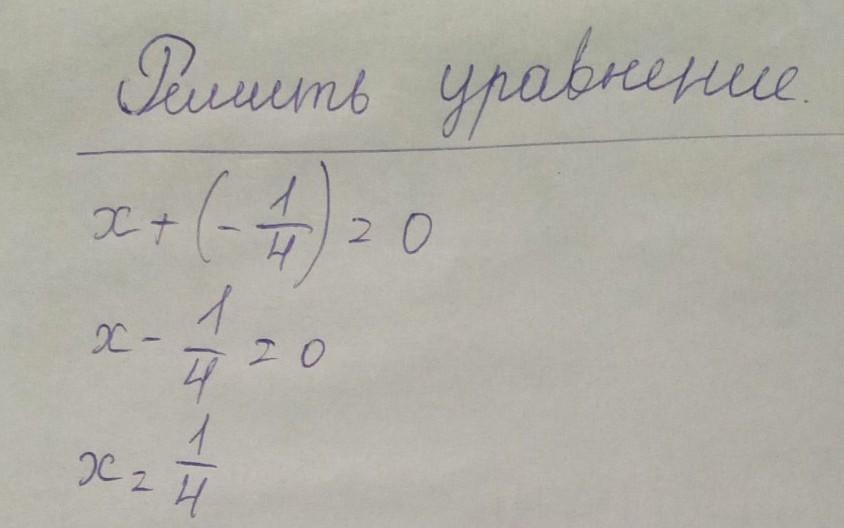 Решить уравнение.
x + (- 1/4) = 0
x - 1/4 = 0
x = 1/4